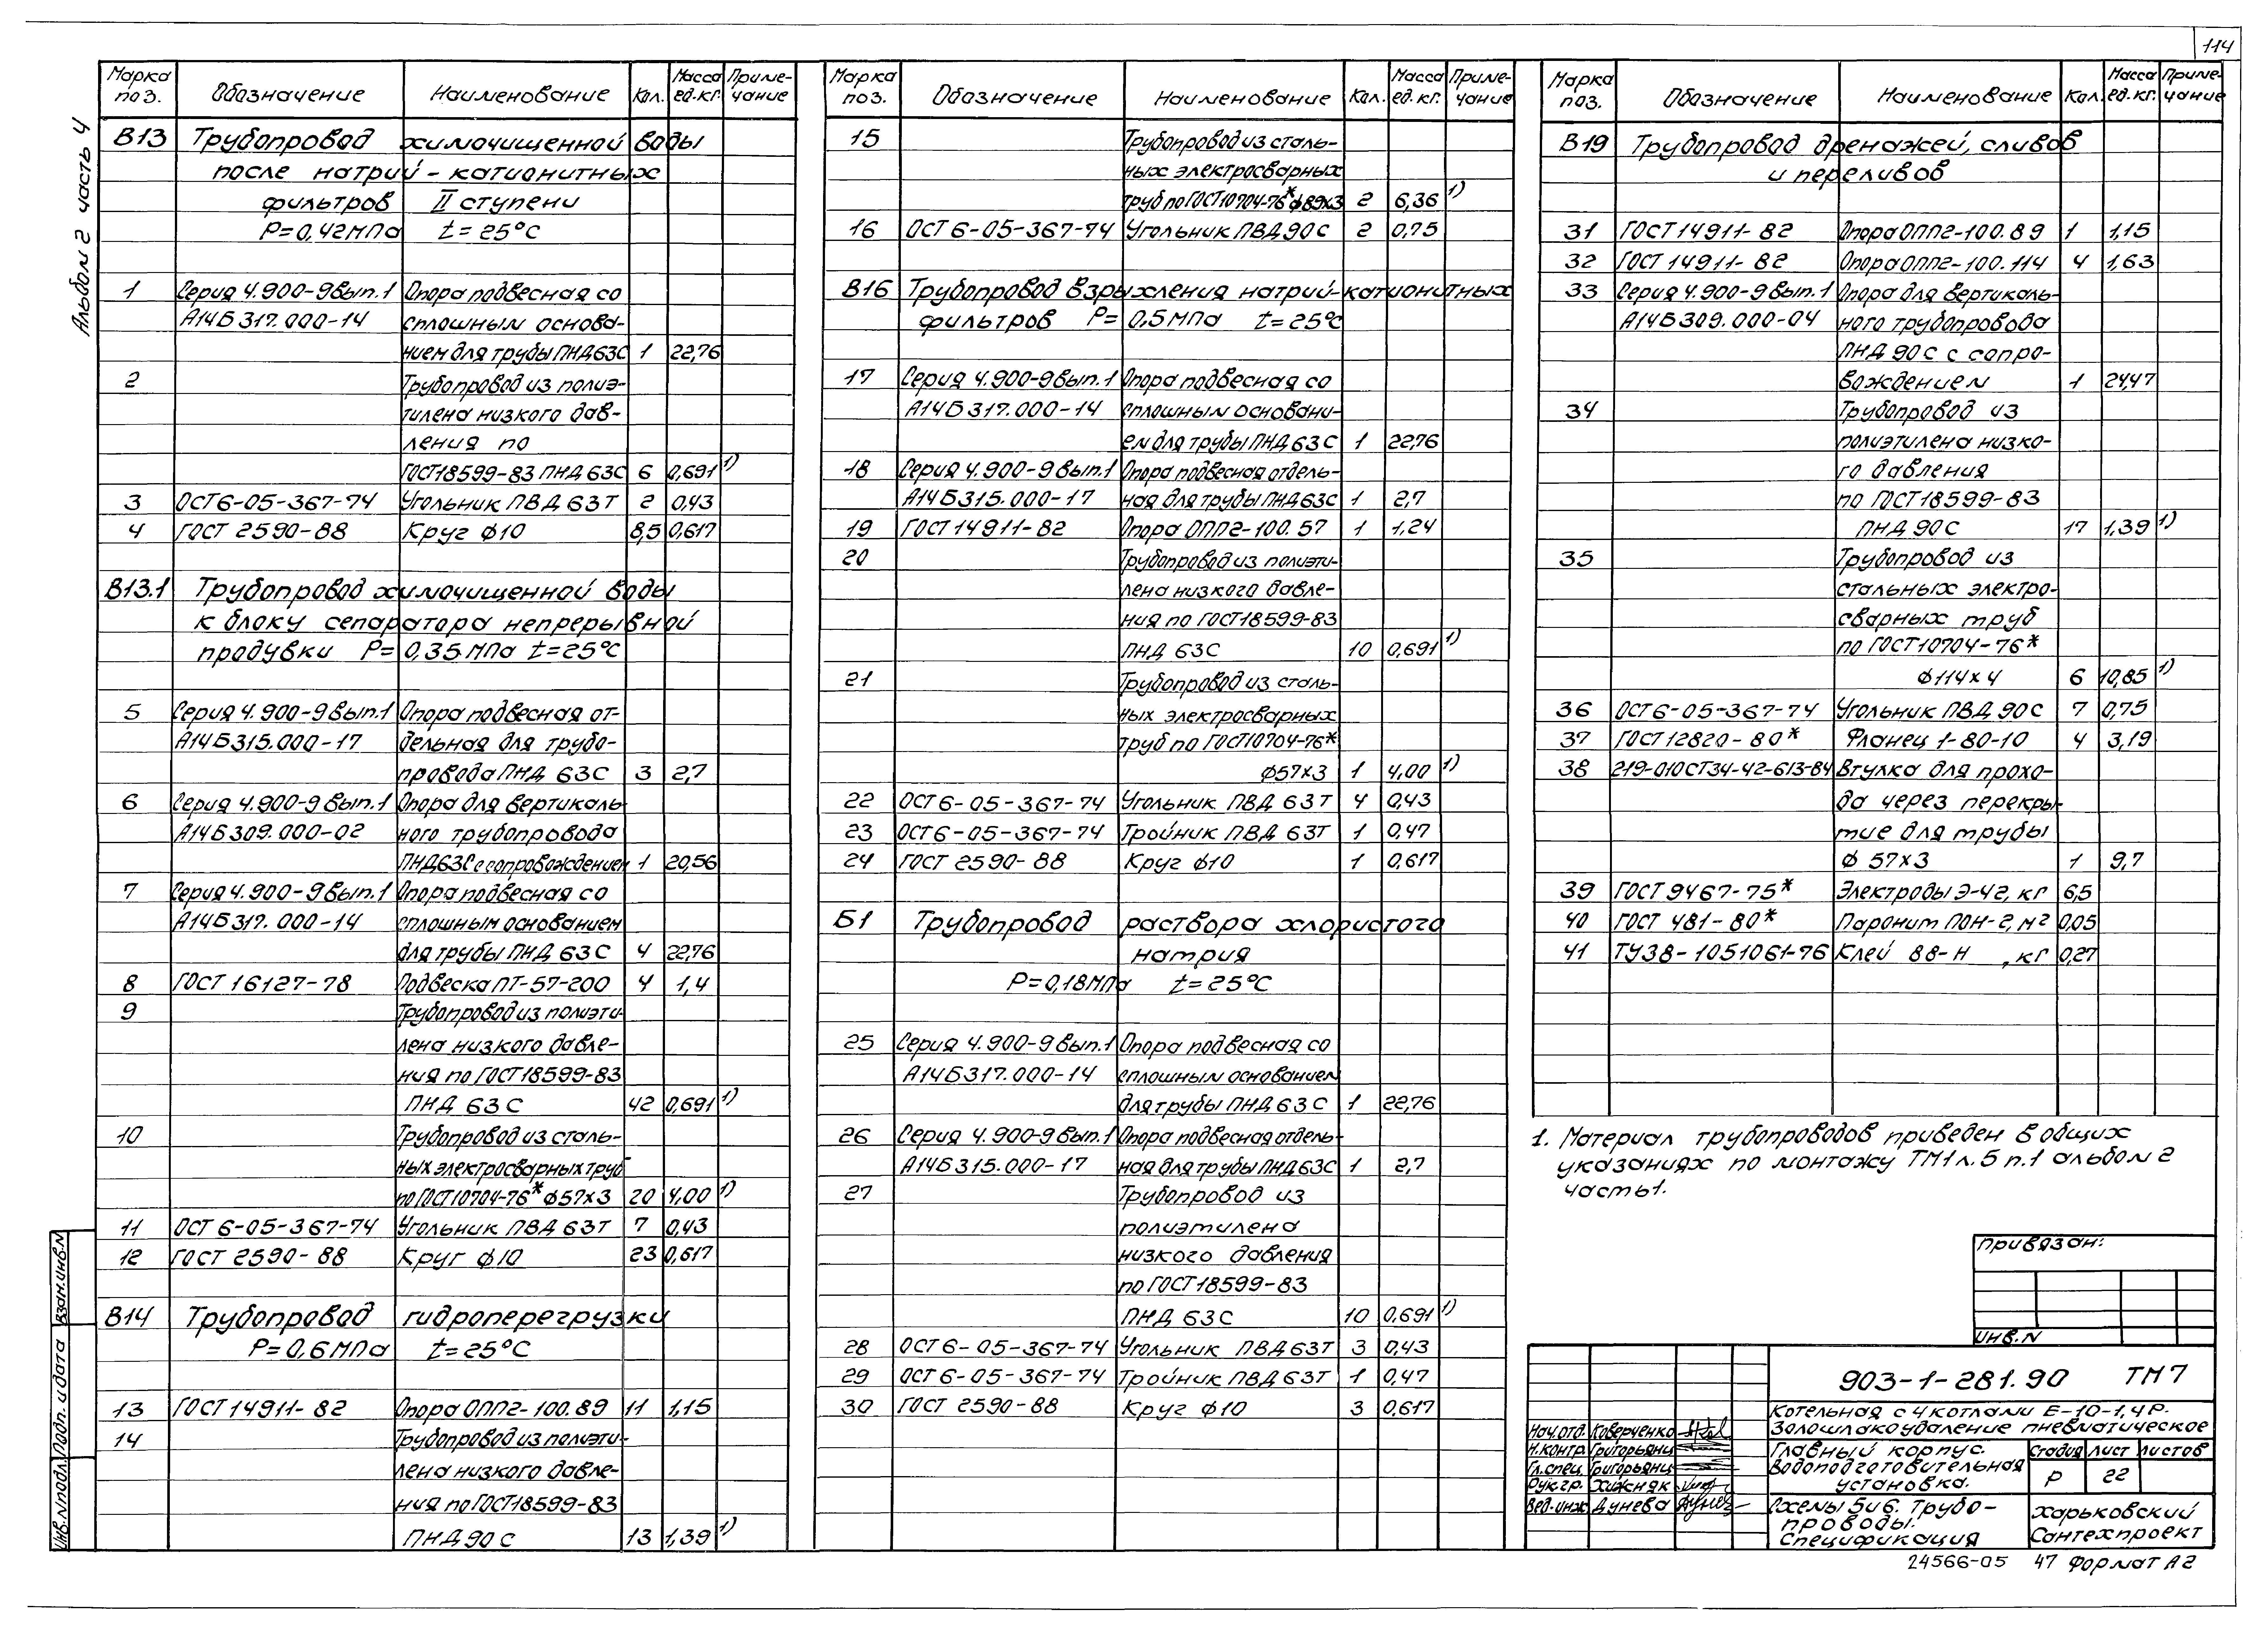 114
Альбом 2 часть 4
Марка поз. Обозначение Наименование Кол. Масса ед.кг. Примечание
В13 Трубопровод химочищенной воды
после натрий-катионитных
фильтров II ступени
Р=0,42МПа t=25°С
1 Серия 4.900-9 вып.1 Опора подвесная со
А14Б317.000-14 сплошным основа-
нием для трубы ПНД63С 1 22,76
2 Трубопровод из полиэ-
тилена низкого дав-
ления по
ГОСТ18599-83 ПНД 63С 6 0,691 1)
3 ОСТ6-05-367-74 Угольник ПВД 63Т 2 0,43
4 ГОСТ 2590-88 Круг ф10 8,5 0,617
В13.1 Трубопровод химочищенной воды
к блоку сепаратора непрерывной
продувки Р=0,35МПа t=25°С
5 Серия 4.900-9 вып.1 Опора подвесная от-
А14Б315.000-17 дельная для трубо-
провода ПНД 63С 3 2,7
6 Серия 4.900-9 вып.1 Опора для вертикаль-
А14Б309.000-02 ного трубопровода
ПНД63С с сопровождением 1 20,56
7 Серия 4.900-9 вып.1 Опора подвесная со
А14Б317.000-14 сплошным основанием
для трубы ПНД 63С 4 22,76
8 ГОСТ 16127-78 Подвеска ПТ-57-200 4 1,4
9 Трубопровод из полиэти-
лена низкого давле-
ния по ГОСТ18599-83
ПНД 63С 42 0,691 1)
10 Трубопровод из сталь-
ных электросварных труб
по ГОСТ10704-76* ф57х3 20 4,00 1)
11 ОСТ 6-05-367-74 Угольник ПВД 63Т 7 0,43
12 ГОСТ 2590-88 Круг ф10 23 0,617
В14 Трубопровод гидроперегрузки
Р=0,6МПа t=25°С
13 ГОСТ14911-82 Опора ОПП2-100.89 11 1,15
14 Трубопровод из полиэти-
лена низкого давле-
ния по ГОСТ18599-83
ПНД 90С 13 1,39 1)
Марка поз. Обозначение Наименование Кол. Масса ед.кг. Примечание
15 Трубопровод из сталь-
ных электросварных
труб по ГОСТ10704-76* ф89х3 2 6,36 1)
16 ОСТ 6-05-367-74 Угольник ПВД 90С 2 0,75
В16 Трубопровод взрыхления натрий-катионитных
фильтров Р=0,5МПа t=25°С
17 Серия 4.900-9 вып.1 Опора подвесная со
А14Б317.000-14 сплошным основани-
ем для трубы ПНД 63С 1 22,76
18 Серия 4.900-9 вып.1 Опора подвесная отдель-
А14Б315.000-17 ная для трубы ПНД63С 1 2,7
19 ГОСТ14911-82 Опора ОПП2-100.57 1 1,24
20 Трубопровод из полиэти-
лена низкого давле-
ния по ГОСТ18599-83
ПНД 63С 10 0,691 1)
21 Трубопровод из сталь-
ных электросварных
труб по ГОСТ10704-76*
ф57х3 1 4,00 1)
22 ОСТ6-05-367-74 Угольник ПВД 63Т 4 0,43
23 ОСТ6-05-367-74 Тройник ПВД 63Т 1 0,47
24 ГОСТ 2590-88 Круг ф10 1 0,617
Б1 Трубопровод раствора хлористого
натрия
Р=0,18МПа t=25°С
25 Серия 4.900-9 вып.1 Опора подвесная со
А14Б317.000-14 сплошным основанием
для трубы ПНД 63С 1 22,76
26 Серия 4.900-9 вып.1 Опора подвесная отдель-
А14Б315.000-17 ная для трубы ПНД63С 1 2,7
27 Трубопровод из
полиэтилена
низкого давления
по ГОСТ18599-83
ПНД 63С 10 0,691 1)
28 ОСТ 6-05-367-74 Угольник ПВД63Т 3 0,43
29 ОСТ 6-05-367-74 Тройник ПВД 63Т 1 0,47
30 ГОСТ 2590-88 Круг ф10 3 0,617
Марка поз. Обозначение Наименование Кол. Масса ед.кг. Примечание
В19 Трубопровод дренажей, сливов
и переливов
31 ГОСТ14911-82 Опора ОПП2-100.89 1 1,15
32 ГОСТ 14911-82 Опора ОПП2-100.114 4 1,63
33 Серия 4.900-9 вып.1 Опора для вертикаль-
А14Б309.000-04 ного трубопровода
ПНД 90С с сопро-
вождением 1 24,47
34 Трубопровод из
полиэтилена низко-
го давления
по ГОСТ18599-83
ПНД 90С 17 1,39 1)
35 Трубопровод из
стальных электро-
сварных труб
по ГОСТ10704-76*
ф114х4 6 10,85 1)
36 ОСТ6-05-367-74 Угольник ПВД 90С 7 0,75
37 ГОСТ12820-80* Фланец 1-80-10 4 3,19
38 219-01ОСТ34-42-613-84 Втулка для прохо-
да через перекры-
тие для трубы
ф 57х3 1 9,7
39 ГОСТ 9467-75* Электроды Э-42, кг 6,5
40 ГОСТ 481-80* Паронит ПОН-2, м² 0,05
41 ТУ38-1051061-76 Клей 88-Н , кг 0,27
1. Материал трубопроводов приведен в общих
указаниях по монтажу ТМ1 л.5 п.1 альбом 2
часть1.
Привязан:
Инв.N
903-1-281.90 ТМ7
Котельная с 4 котлами Е-10-1,4Р.
Золошлакоудаление пневматическое
Нач.отд. Коверченко
Н.контр. Григорьянц
Гл.спец. Григорьянц
Рук.гр. Хижняк
Вед.инж. Дунева
Главный корпус.
Водоподготовительная
установка.
Стадия Лист Листов
Р 22
Схемы 5и6. Трубо-
проводы.
Спецификация
Харьковский
Сантехпроект
24566-05 47 Формат А2
Инв.Nподл. Подп. и дата Взам.инв.N